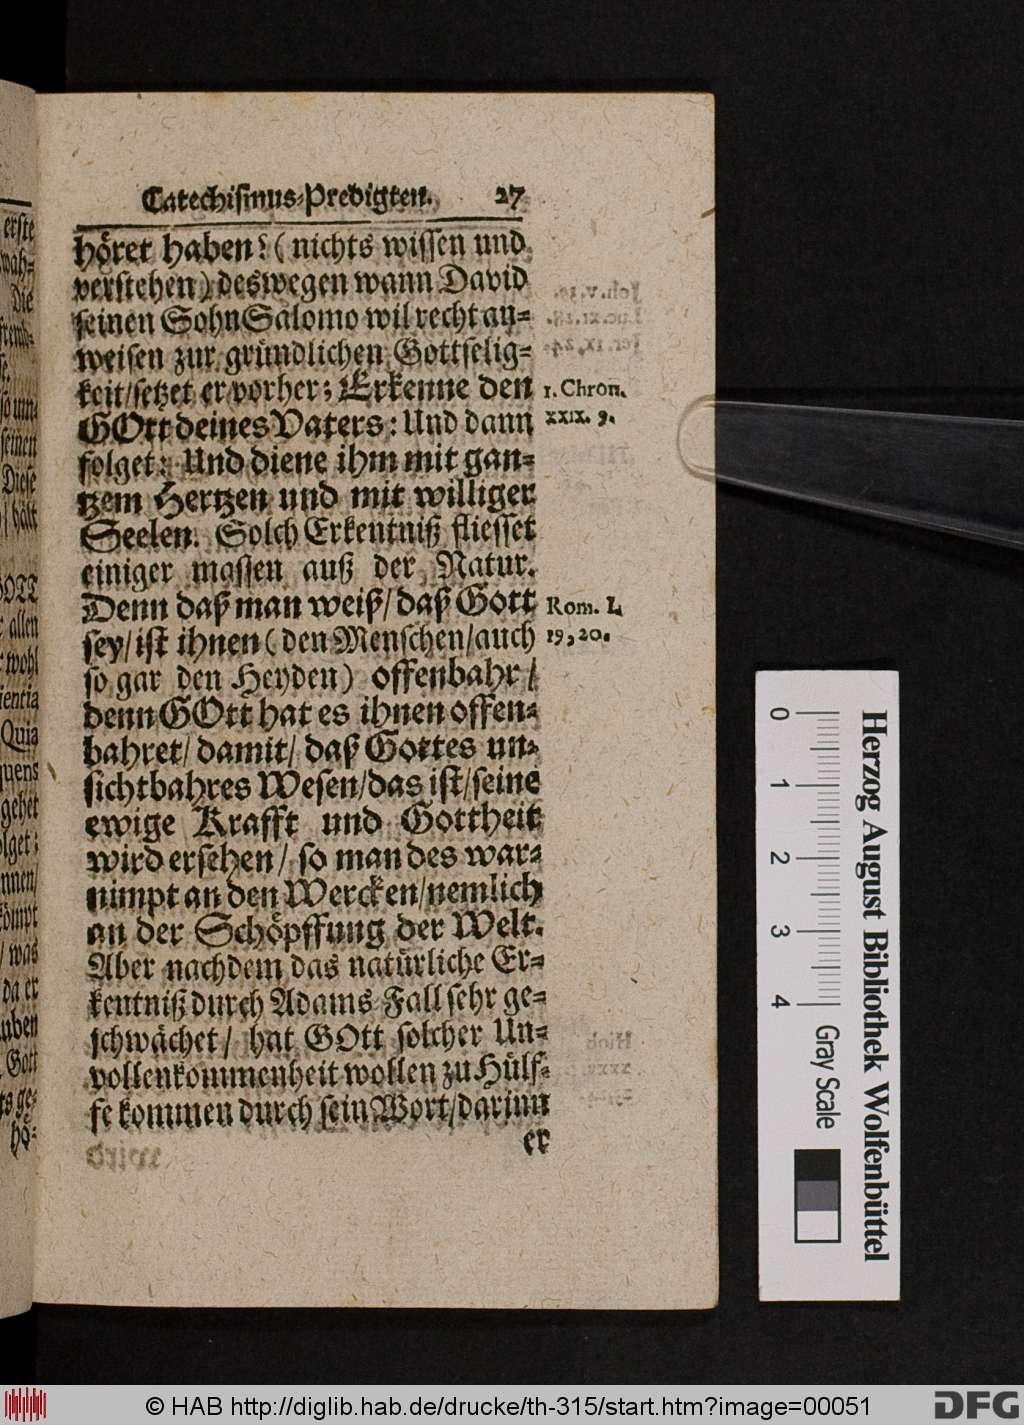 Catechismus-Predigten. 27
höret haben? (nichts wissen und
verstehen) deswegen wann David
seinen Sohn Salomo wil recht an-
weisen zur gründlichen Gottselig-
keit/setzet er vorher; Erkenne den
1. Chron.
GOtt deines Vaters: Und dann
XXIX. 9.
folget: Und diene ihm mit gan-
tzem Hertzen und mit williger
Seelen. Solch Erkentniß fliesset
einiger massen auß der Natur.
Denn daß man weiß/daß Gott
Rom. I.
sey/ist ihnen (den Menschen/auch
19, 20.
so gar den Heyden) offenbahr/
denn GOtt hat es ihnen offen-
bahret/damit/daß Gottes un-
sichtbahres Wesen/das ist/seine
ewige Krafft und Gottheit
wird ersehen/so man des war-
nimpt an den Wercken/nemlich
an der Schöpffung der Welt.
Aber nachdem das natürliche Er-
kentniß durch Adams Fall sehr ge-
schwächet/ hat GOtt solcher Un-
vollenkommenheit wollen zu Hülf-
fe kommen durch sein Wort/darinn
er
erste
die
seinen
Diese
allen
wohl
Quia
gehet
was
da er
Gott
hö-
0 1 2 3 4
Gray Scale
Herzog August Bibliothek Wolfenbüttel
© HAB http://diglib.hab.de/drucke/th-315/start.htm?image=00051
DFG